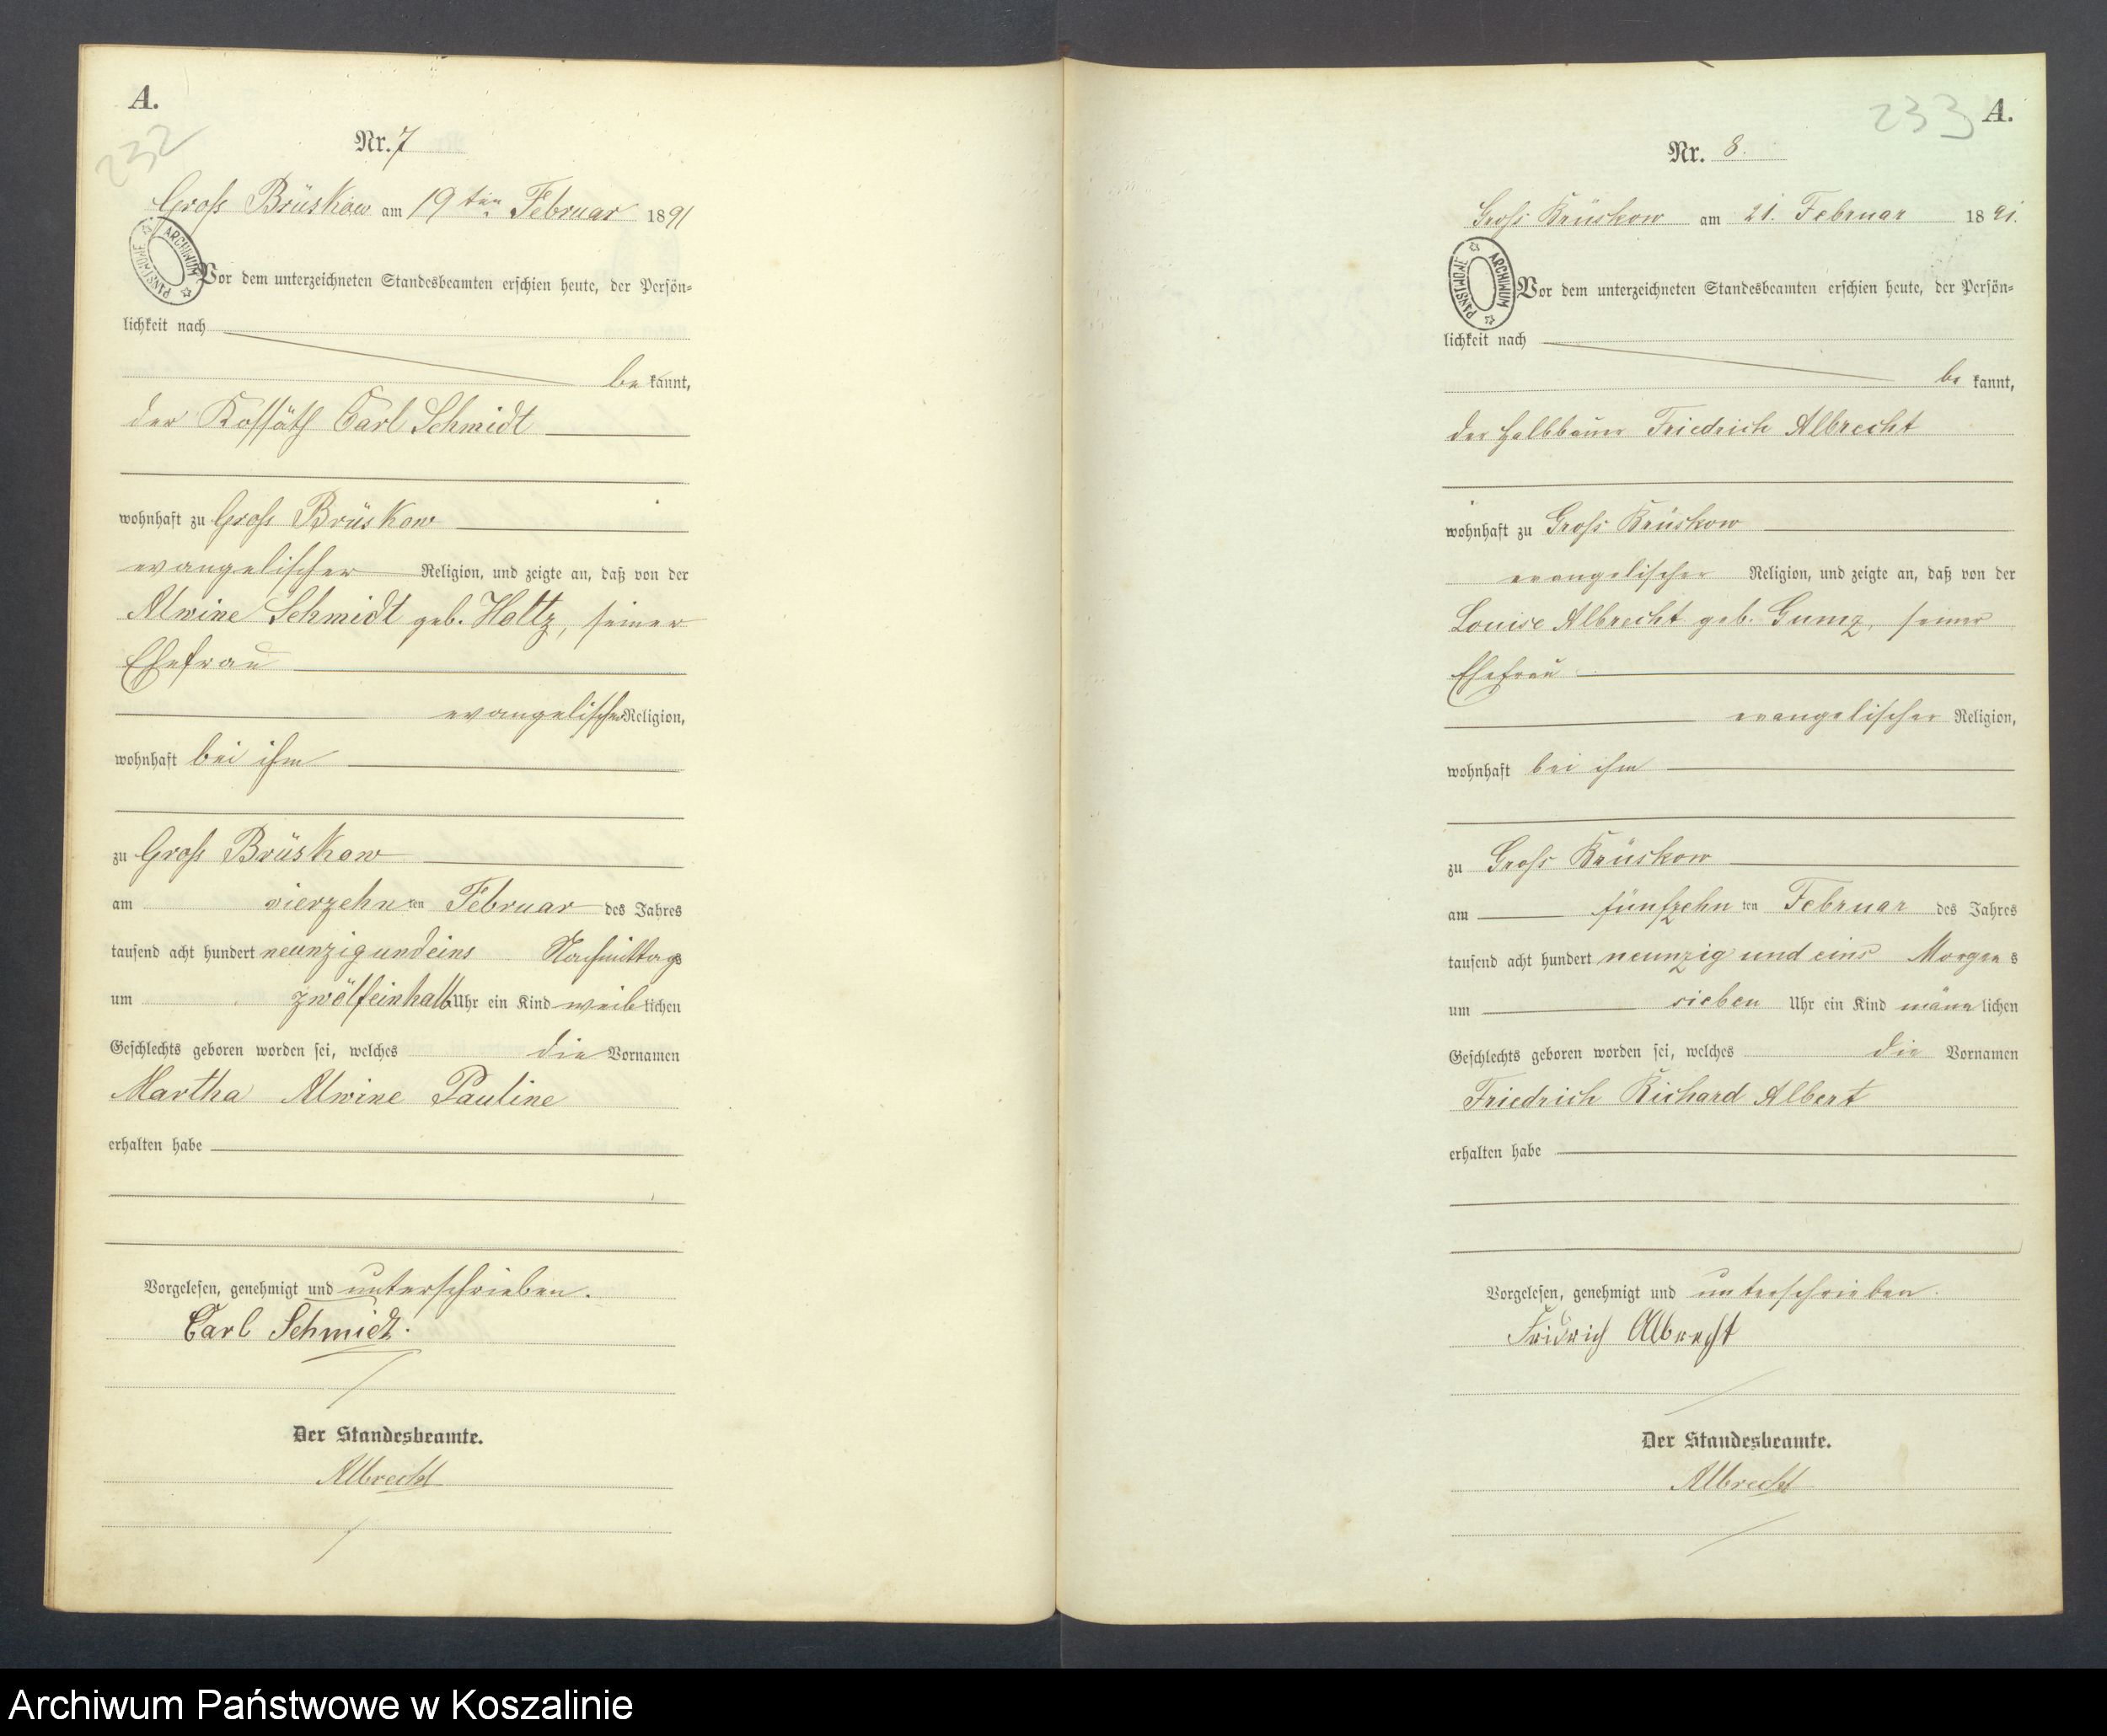 A.
232
Nr. 7
Groß Brüskow am 19ten Februar 1891
ARCHIWUM PAŃSTWOWE
Vor dem unterzeichneten Standesbeamten erschien heute, der Persön-
lichkeit nach
be kannt,
der Kossäth Carl Schmidt
wohnhaft zu Groß Brüskow
evangelischer Religion, und zeigte an, daß von der
Alwine Schmidt geb. Holtz, seiner
Ehefrau
evangelischer Religion,
wohnhaft bei ihm
zu Groß Brüskow
am vierzehn ten Februar des Jahres
tausend acht hundert neunzigundeins Nachmittags
um zwölfeinhalb Uhr ein Kind weiblichen
Geschlechts geboren worden sei, welches die Vornamen
Martha Alwine Pauline
erhalten habe
Vorgelesen, genehmigt und unterschrieben.
Carl Schmidt.
Der Standesbeamte.
Albrecht
233 A.
Nr. 8.
Groß Brüskow am 21. Februar 1891.
ARCHIWUM PAŃSTWOWE
Vor dem unterzeichneten Standesbeamten erschien heute, der Persön-
lichkeit nach
be kannt,
der Halbbauer Friedrich Albrecht
wohnhaft zu Groß Brüskow
evangelischer Religion, und zeigte an, daß von der
Louise Albrecht geb. Gumz, seiner
Ehefrau
evangelischer Religion,
wohnhaft bei ihm
zu Groß Brüskow
am fünfzehn ten Februar des Jahres
tausend acht hundert neunzig und eins Morgens
um sieben Uhr ein Kind männlichen
Geschlechts geboren worden sei, welches die Vornamen
Friedrich Richard Albert
erhalten habe
Vorgelesen, genehmigt und unterschrieben.
Fridrich Albrecht
Der Standesbeamte.
Albrecht
Archiwum Państwowe w Koszalinie